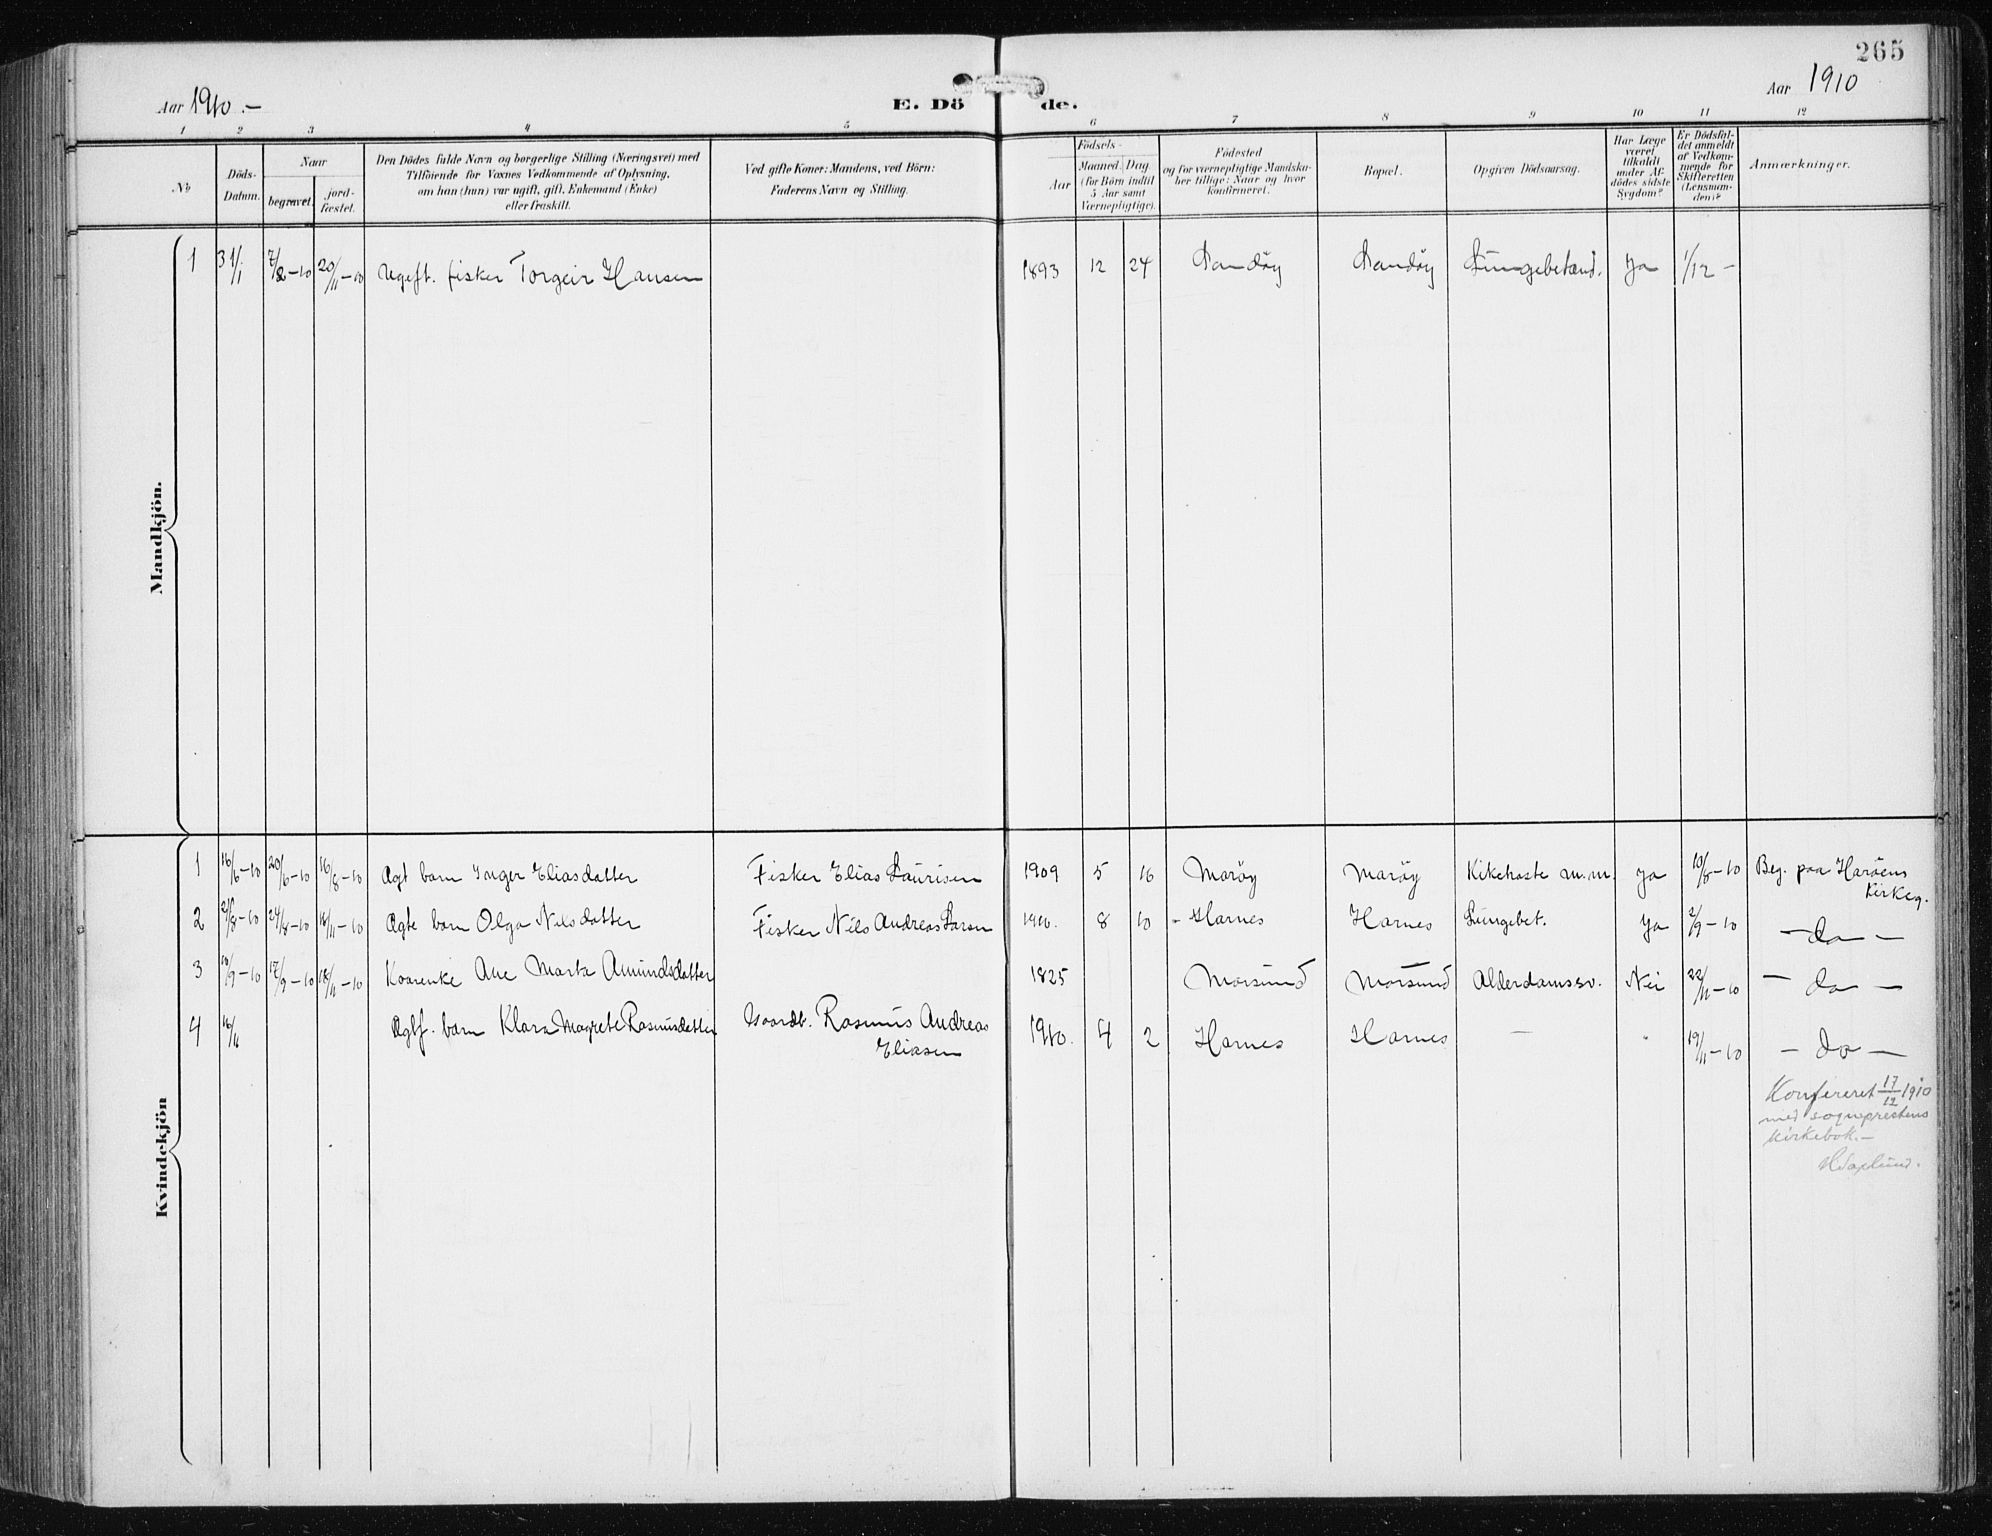 265
Aar 1910.-
E. Döde.
Aar 1910
1 2 3 4 5 6 7 8 9 10 11 12
№
Döds-Datum.
Naar
begravet.
jord-fæstet.
Den Dödes fulde Navn og borgerlige Stilling (Næringsvei) med
Tilföiende for Voxnes Vedkommende af Oplysning,
om han (hun) var ugift, gift, Enkemand (Enke)
eller fraskilt.
Ved gifte Koner: Mandens, ved Börn:
Faderens Navn og Stilling.
Födsels-
Aar
Maaned. Dag
(for Börn indtil
5 Aar samt
Værnepligtige).
Födested
og for værnepligtige Mandska-
ber tillige: Naar og hvor
konfirmeret.
Bopæl.
Opgiven Dödsaarsag.
Har Læge
været
tilkaldt
under Af-
dödes sidste
Sygdom?
Er Dödsfal-
det anmeldt
af Vedkom-
mende for
Skifteretten
(Lensman-
den)?
Anmærkninger.
Mandkjön.
1 31/1 7/2-10 20/11-10 Ugift. fisker Torgeir Hansen 1893 12 24 Sandöy Sandöy Lungebetænd. Ja 1/12-
Kvindekjön
1 16/6-10 20/6-10 16/8-10 Ægt barn Inger Eliasdatter Fisker Elias Laurisen 1909 5 16 Maröy Maröy Kikehoste m.m. Ja 10/8-10 Beg. paa Haröens
Kirkeg.
2 21/8-10 24/8-10 18/11-10 Ægte barn Olga Nilsdatter Fisker Nils Andreas Larsen 1910. 8 10 - Harnes Harnes Lungebet. Ja 2/9-10 - do -
3 10/9-10 17/9-10 18/11-10 Kaarenke Ane Marta Amundsdatter 1825 Morsund Morsund Alderdomssv. Nei 22/11-10 - do -
4 16/11 Ægtf. barn Klara Magrete Rasmusdatter Gaardb. Rasmus Andreas
Eliasen 1910. 4 2 Harnes Harnes - " 19/11-10 - do -
Konfereret 17/12 1910
med sogneprestens
kirkebok.-